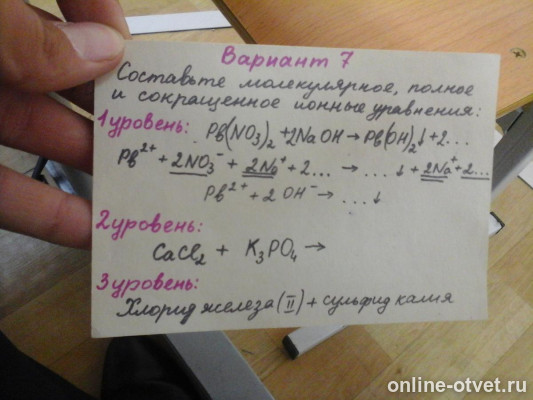 Вариант 7
Составьте молекулярное, полное
и сокращенное ионные уравнения:
1 уровень: Pb(NO₃)₂ + 2NaOH → Pb(OH)₂↓ + 2...
Pb²⁺ + 2NO₃⁻ + 2Na⁺ + 2... → ...↓ + 2Na⁺ + 2...
Pb²⁺ + 2OH⁻ → ...↓
2 уровень:
CaCl₂ + K₃PO₄ →
3 уровень:
Хлорид железа (II) + сульфид калия
online-otvet.ru